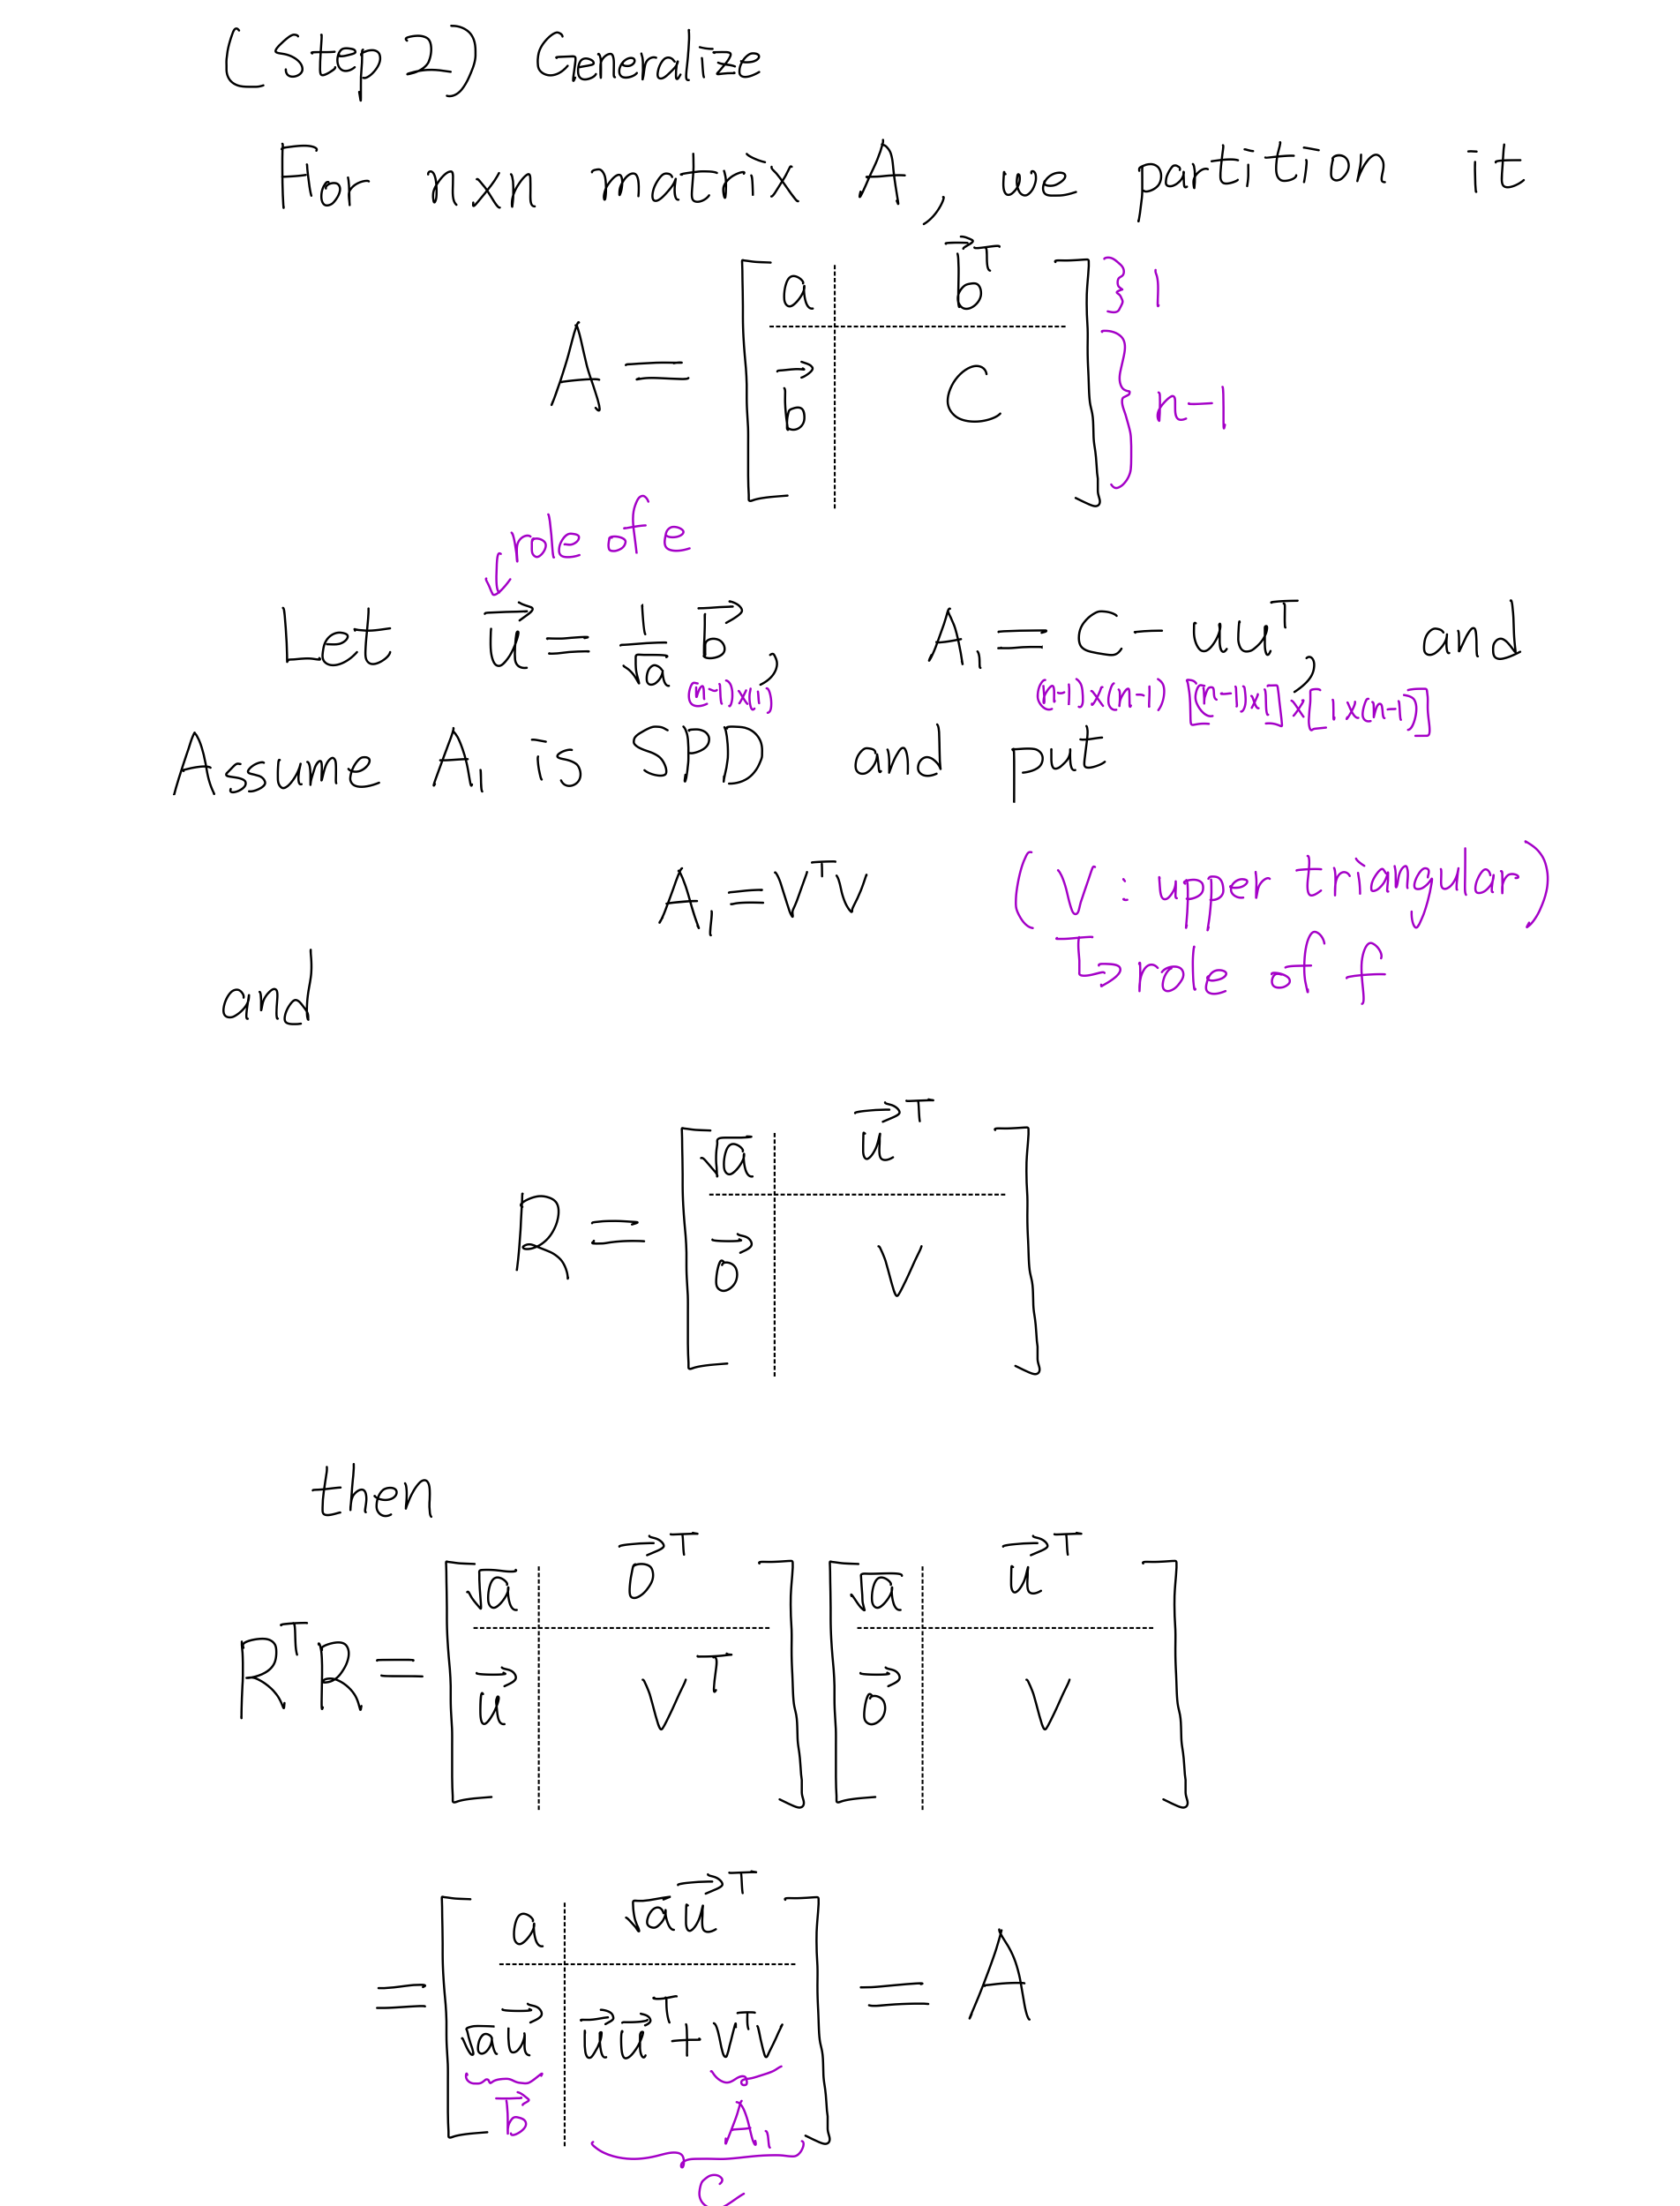 (Step 2) Generalize
For n×n matrix A, we partition it
A = [ a | b⃗ᵀ ; b⃗ | C ] } 1 } n-1
↓ role of e
Let u⃗ = 1/√a b⃗, A₁ = C - uuᵀ, and
(n-1)×(1) (n-1)×(n-1) [(n-1)×1]×[1×(n-1)]
Assume A₁ is SPD and put
A₁ = VᵀV (V : upper triangular)
↳ role of f
and
R = [ √a | u⃗ᵀ ; 0⃗ | V ]
then
RᵀR = [ √a | 0⃗ᵀ ; u⃗ | Vᵀ ] [ √a | u⃗ᵀ ; 0⃗ | V ]
= [ a | √a u⃗ᵀ ; √a u⃗ | u⃗u⃗ᵀ + VᵀV ] = A
b⃗ A₁
C